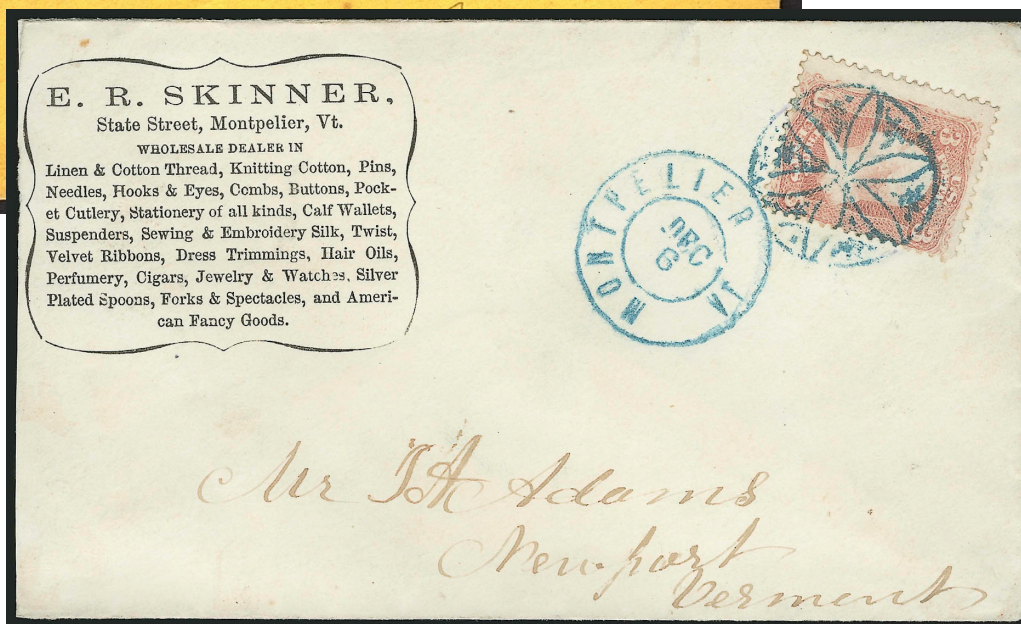 E. R. SKINNER,
State Street, Montpelier, Vt.
WHOLESALE DEALER IN
Linen & Cotton Thread, Knitting Cotton, Pins,
Needles, Hooks & Eyes, Combs, Buttons, Pock-
et Cutlery, Stationery of all kinds, Calf Wallets,
Suspenders, Sewing & Embroidery Silk, Twist,
Velvet Ribbons, Dress Trimmings, Hair Oils,
Perfumery, Cigars, Jewelry & Watches, Silver
Plated Spoons, Forks & Spectacles, and Ameri-
can Fancy Goods.
MONTPELIER VT
DEC
6
U 3 S
Mr Adams
Newport
Vermont